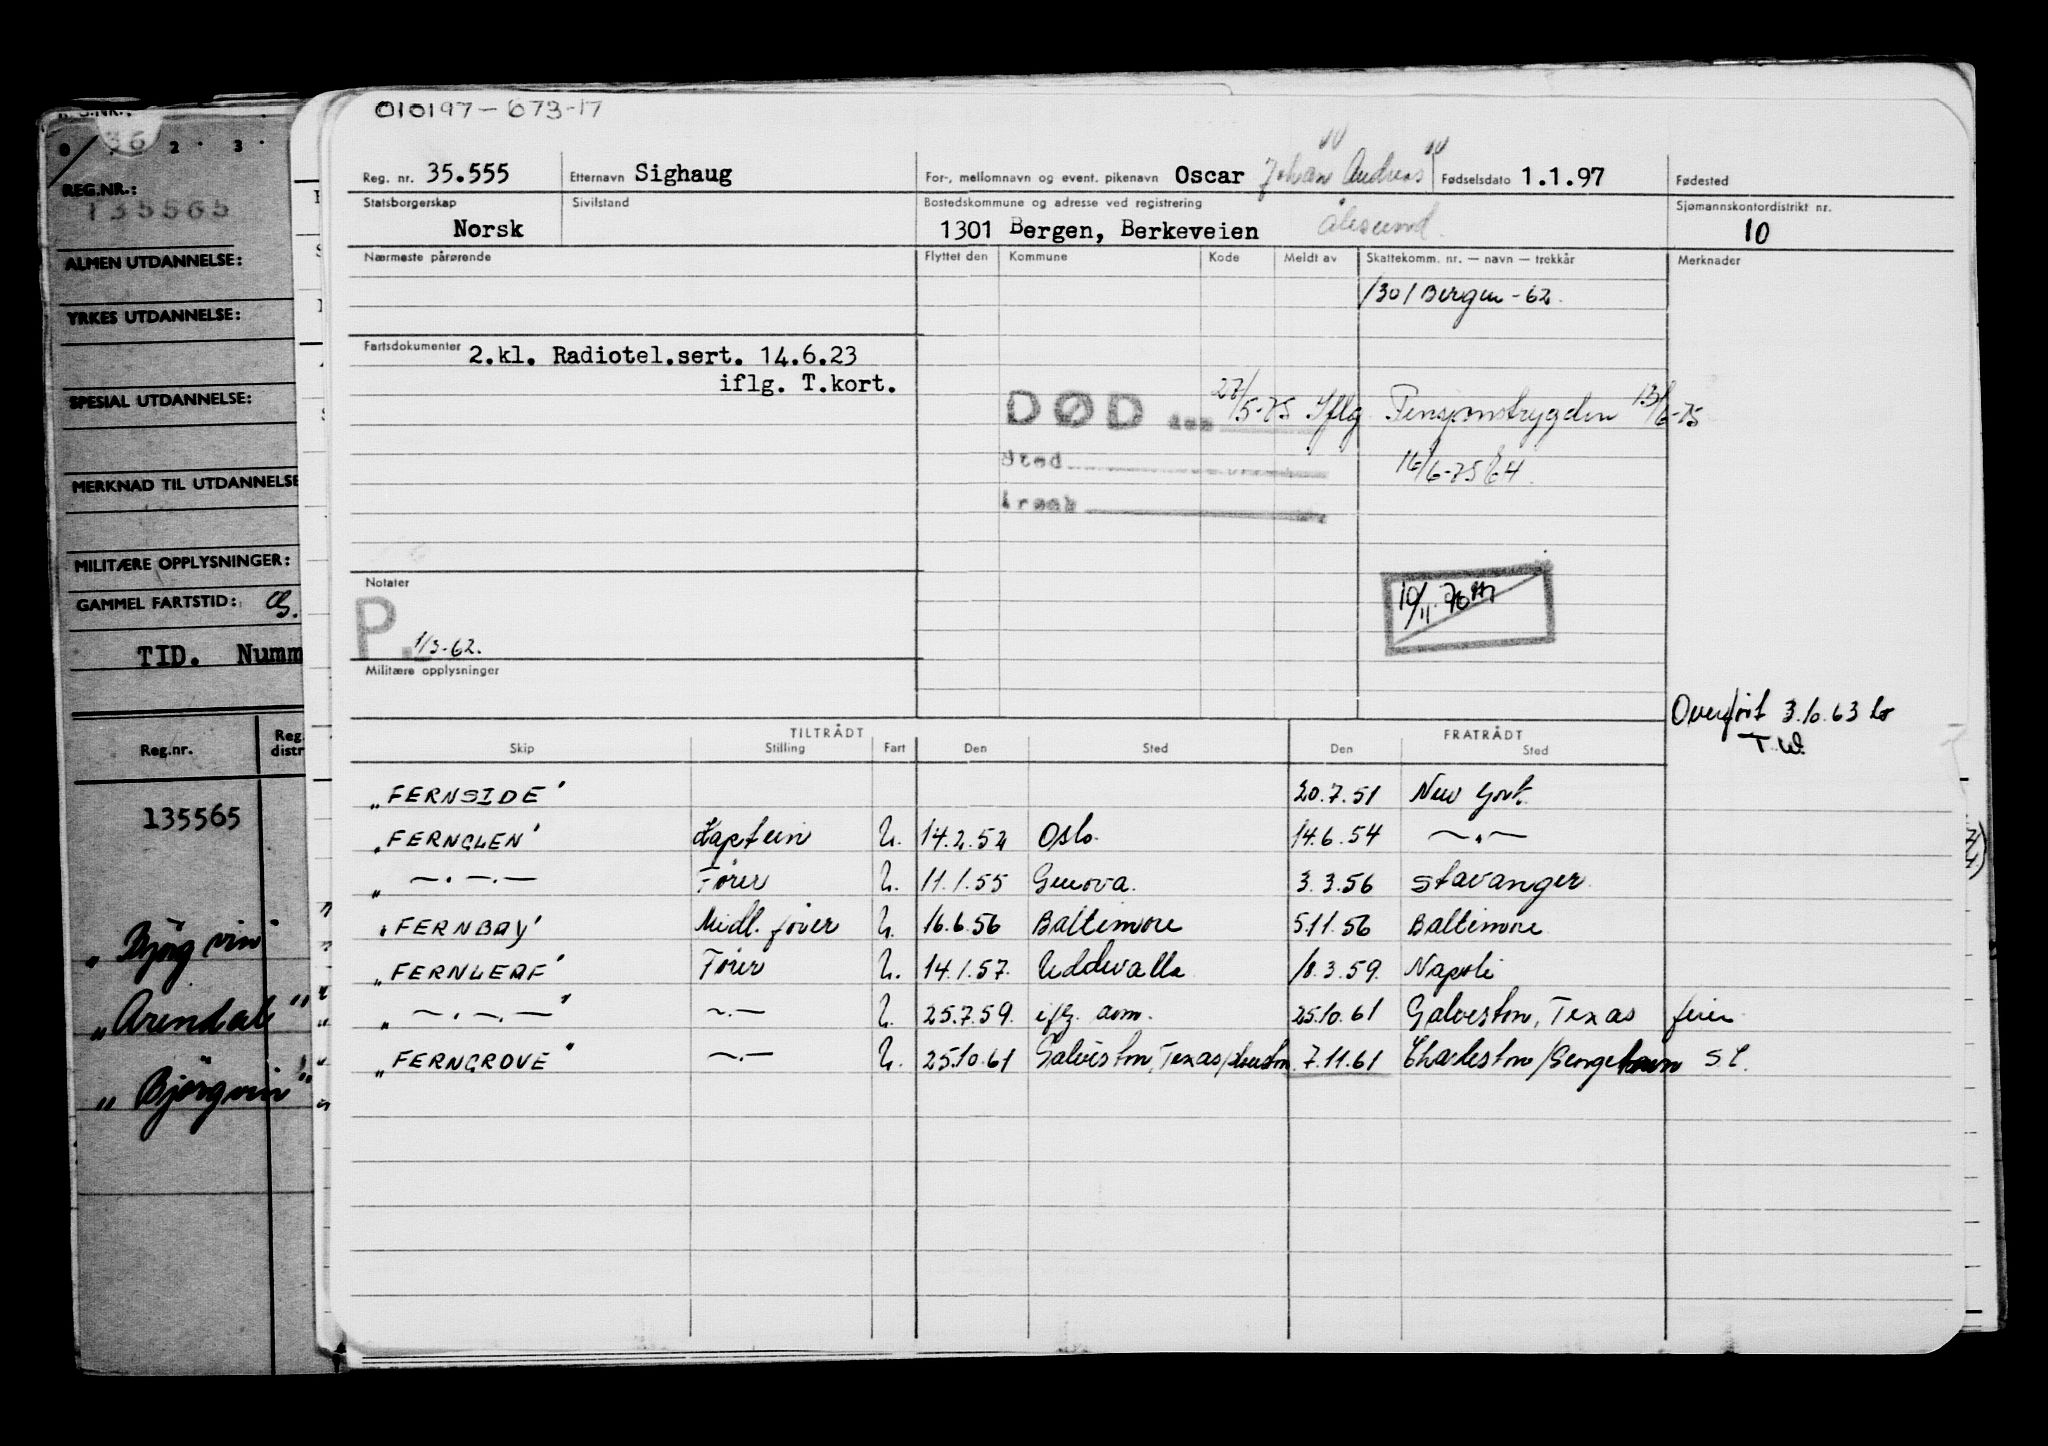 010197-673-17
REG.NR.:
135565
ALMEN UTDANNELSE:
YRKES UTDANNELSE:
SPESIAL UTDANNELSE:
MERKNAD TIL UTDANNELSE
MILITÆRE OPPLYSNINGER:
GAMMEL FARTSTID:
TID. Numm
Reg.nr. Reg. distr
135565
"Bjørgvin"
"Arendal"
"Bjørgvin"
Reg. nr. 35.555 Etternavn Sighaug For-, mellomnavn og event. pikenavn Oscar Johan Andreas Fødselsdato 1.1.97 Fødested
Statsborgerskap Sivilstand Bostedskommune og adresse ved registrering Sjømannskontordistrikt nr.
Norsk 1301 Bergen, Berkeveien Ålesund. 10
Nærmeste pårørende Flyttet den Kommune Kode Meldt av Skattekomm. nr. — navn — trekkår Merknader
1301 Bergen -62.
Fartsdokumenter 2.kl. Radiotel.sert. 14.6.23
iflg. T.kort.
DØD den 27/5-75 Iflg Pensjonstrygden 13/6-75
Sted 16/6-75
Årsak
Notater
10/11.70
P. 1/3-62.
Militære opplysninger
Overført 3.10.63
TILTRÅDT FRATRÅDT
Skip Stilling Fart Den Sted Den Sted
"FERNSIDE" 20.7.51 New York
"FERNGLEN" Kaptein U. 14.2.52 Oslo. 14.6.54 —.—
" —.—.— Fører U. 11.1.55 Genova. 3.3.56 Stavanger
"FERNBAY" Midl. fører U. 16.6.56 Baltimore 5.11.56 Baltimore
"FERNLEAF" Fører U. 14.1.57. Uddevalla 18.3.59. Napoli
" —.—.— " —.— U. 25.7.59. iflg. anm. 25.10.61 Galveston, Texas
"FERNGROVE" —.— U. 25.10.61 Galveston, Texas/Houston 7.11.61 Charleston/Georgetown S.C.